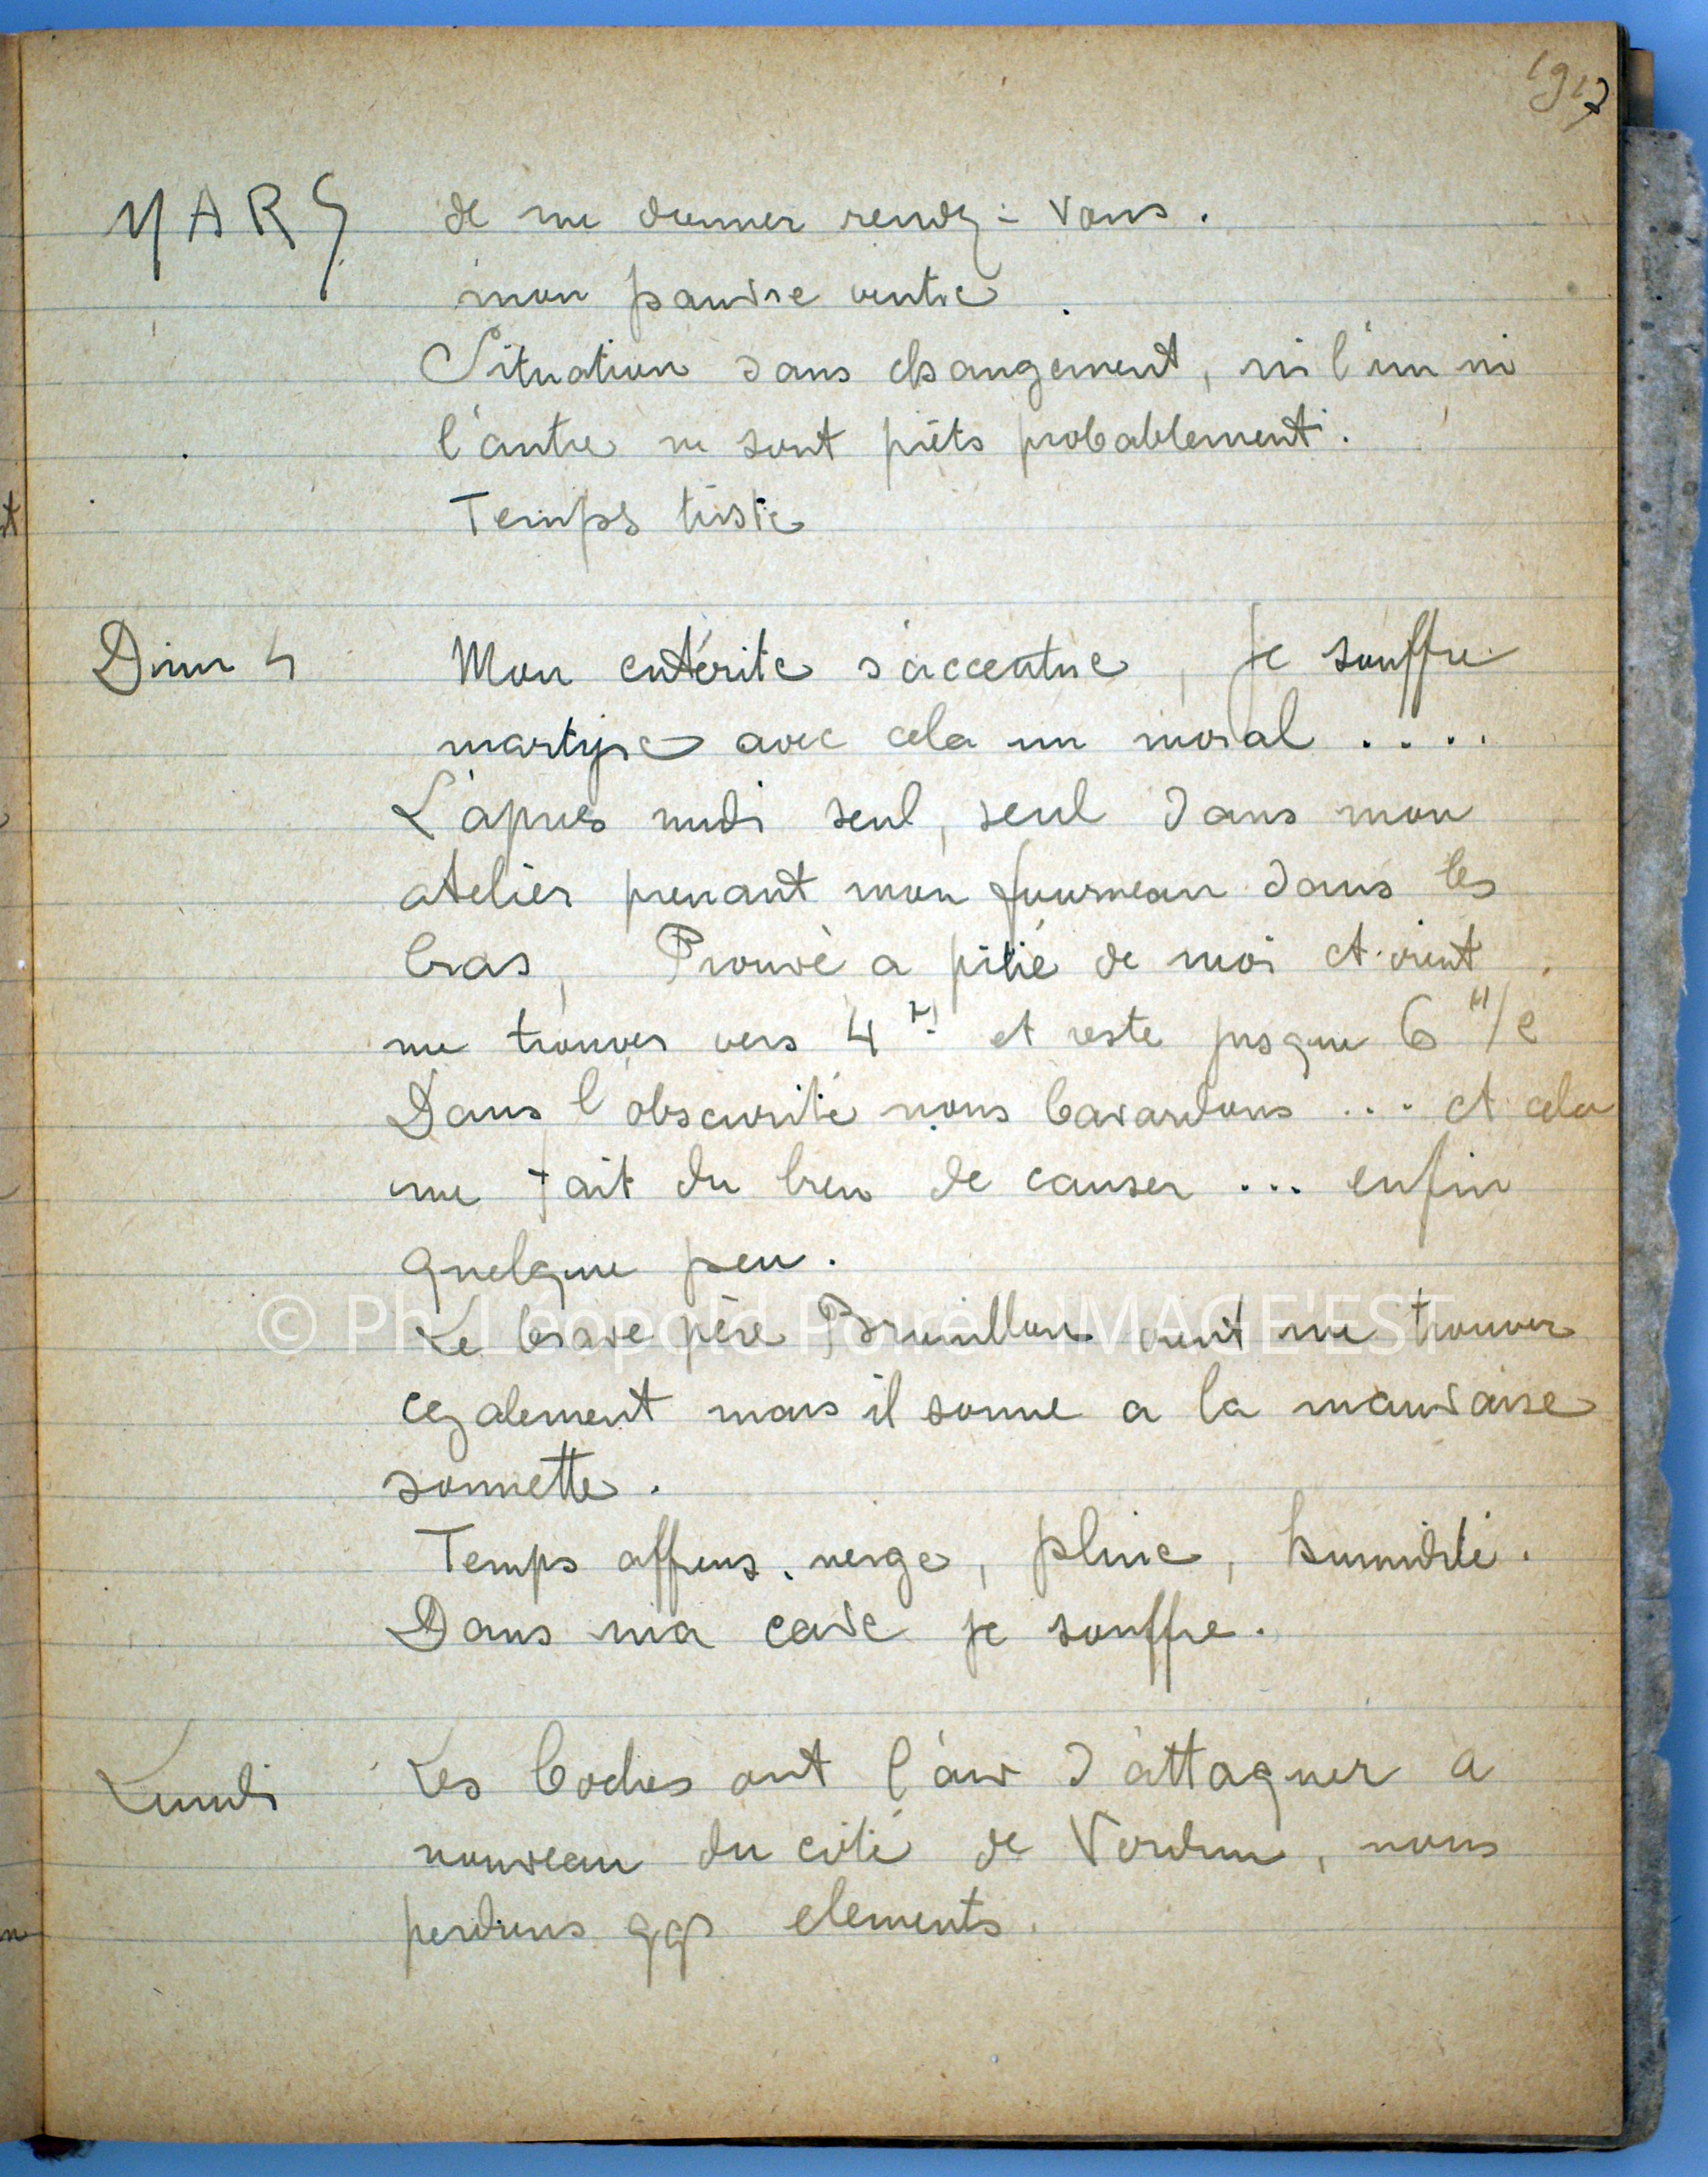 1917
MARS de me donner rendez-vous.
mon pauvre ventre
Situation sans changement, ni l'un ni
l'autre ne sont prêts probablement.
Temps triste
Dim 4 Mon entérite s'accentue, je souffre
martyre avec cela un moral ....
L'après midi seul, seul dans mon
atelier prenant mon fourneau dans les
bras, Prouvé a pitié de moi et vient
me trouver vers 4 H et reste jusque 6 H/2
Dans l'obscurité nous bavardons ... et cela
me fait du bien de causer ... enfin
quelque peu.
Le brave père Brunillon vient me trouver
egalement mais il sonne a la mauvaise
sonnette.
Temps affreux, neige, pluie, humidité.
Dans ma cave je souffre.
Lundi Les boches ont l'air d'attaquer a
nouveau du coté de Verdun, nous
perdons qqs elements.
© Ph. Léopold Poiré / IMAGE'EST